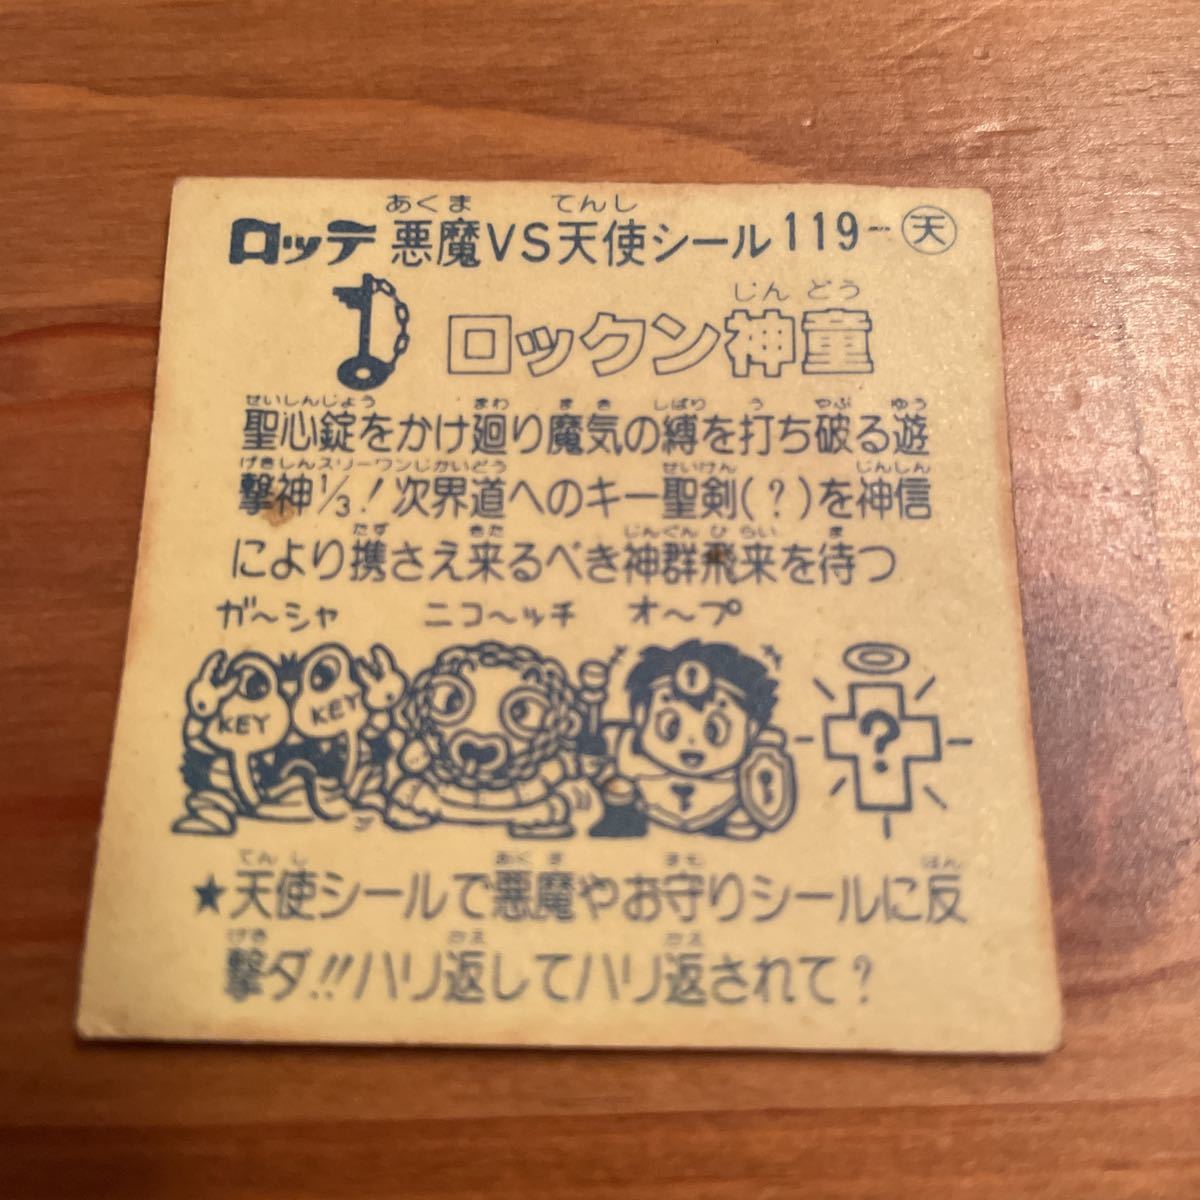 あくま てんし
ロッテ 悪魔VS天使シール119-天
じん どう
ロックン神童
せいしんじょう まわ まき しばり う やぶ ゆう
聖心錠をかけ廻り魔気の縛を打ち破る遊
げきしんスリーワンじかいどう せいけん じんしん
撃神1/3！次界道へのキー聖剣(?)を神信
たず きた じんぐんひらい ま
により携さえ来るべき神群飛来を待つ
ガ〜シャ ニコ〜ッチ オ〜プ
KEY KEY ?
てんし あくま まも はん
★天使シールで悪魔やお守りシールに反
げき かえ かえ
撃ダ!!ハリ返してハリ返されて?